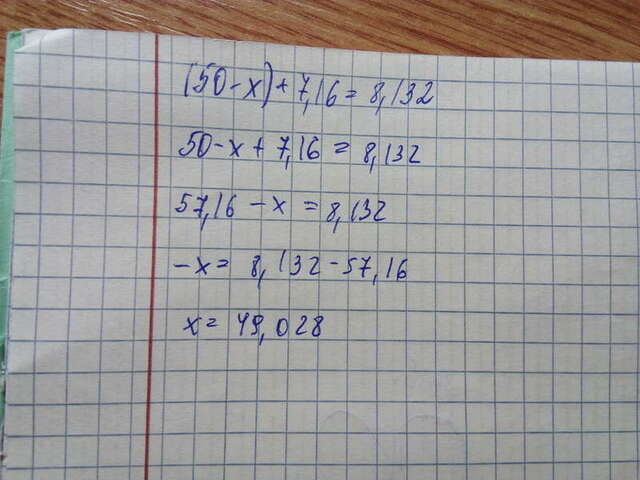 (50-x)+7,16=8,132
50-x+7,16=8,132
57,16-x=8,132
-x=8,132-57,16
x=49,028